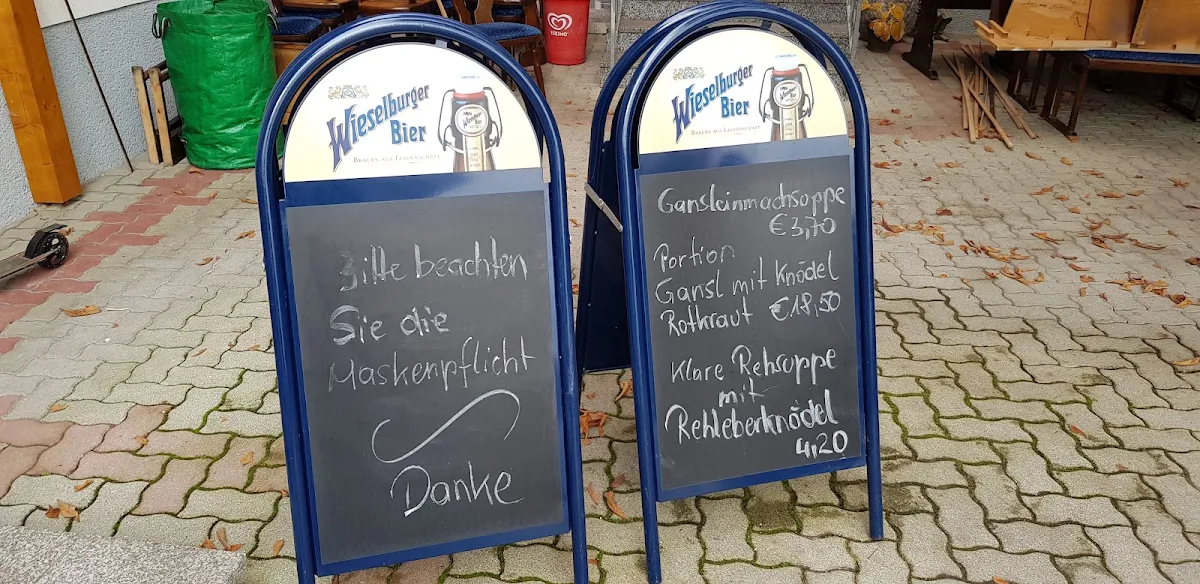 Wieselburger
Bier
BRAUEN AUS LEIDENSCHAFT
Bitte beachten
Sie die
Maskenpflicht
Danke
Wieselburger
Bier
BRAUEN AUS LEIDENSCHAFT
Gansleinmachsoppe
€3,70
Portion
Gansl mit Knödel
Rotkraut €18,50
Klare Rehsoppe
mit
Rehleberknödel
4,20
ESKIMO